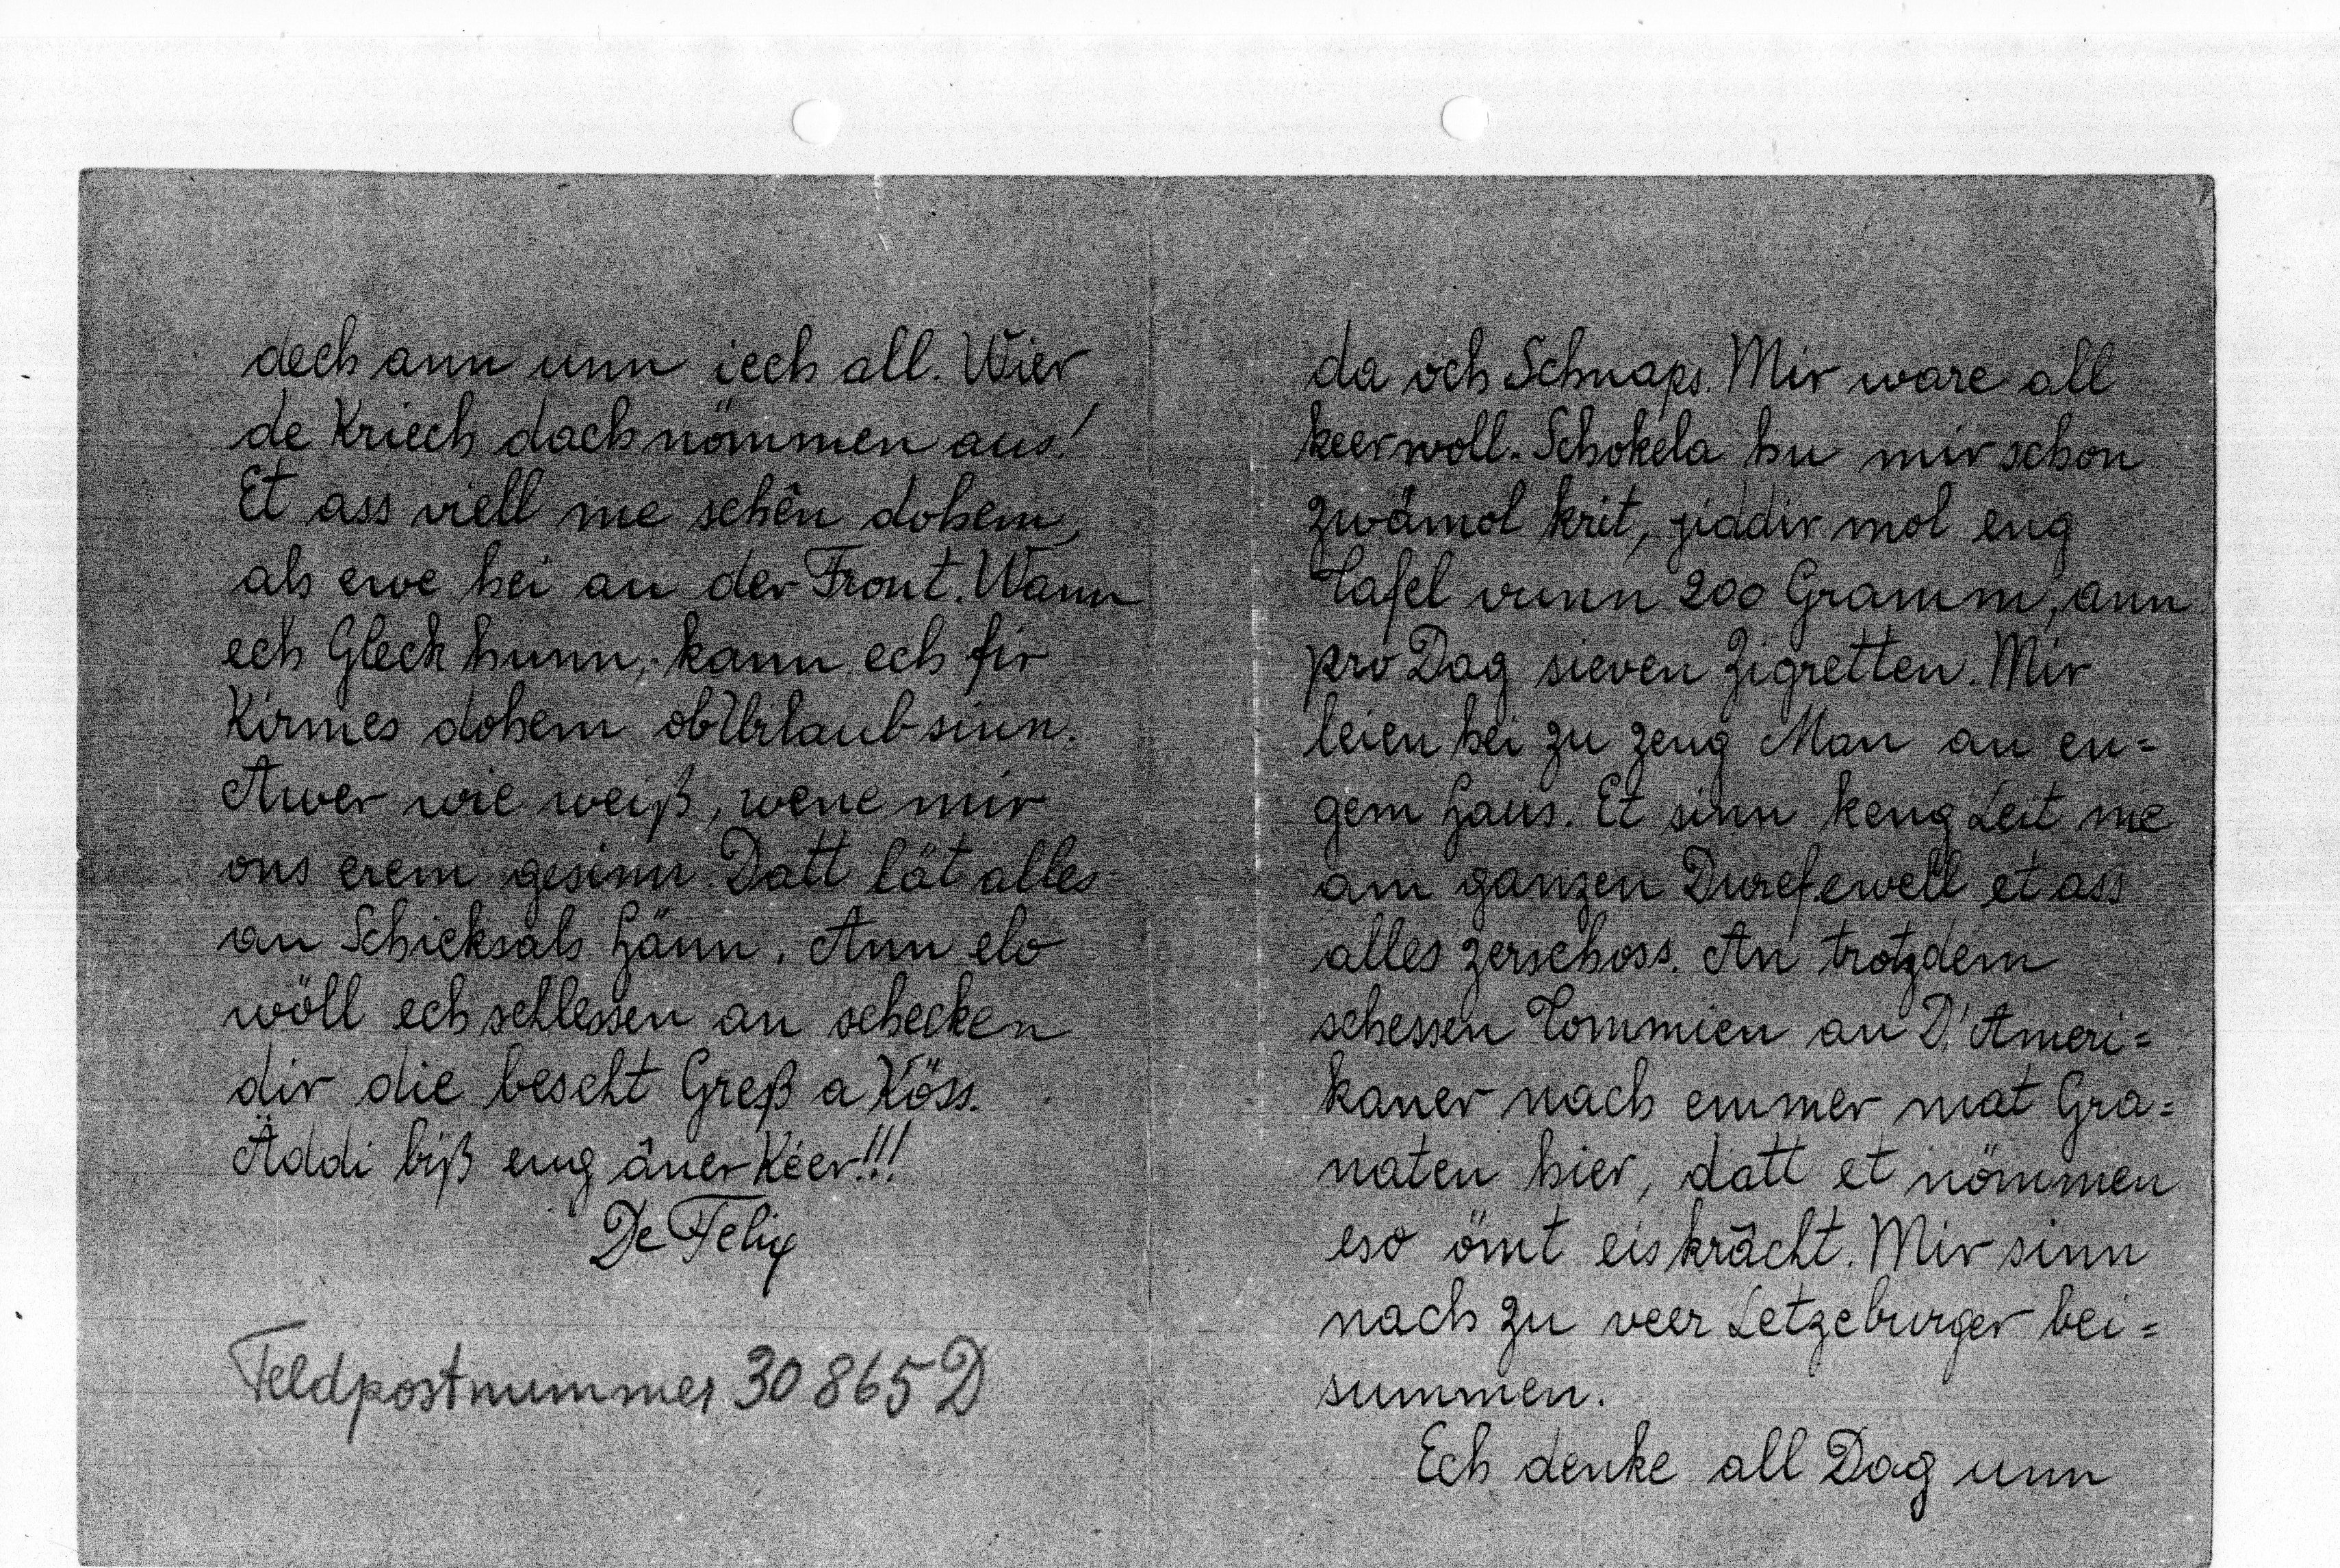 dech ann unn iech all. Wier
de Kriech dach nömmen aus!
Et ass viell me schên dohem,
als ewe hei an der Front. Wann
ech Gleck hunn, kann ech fir
Kirmes dohem ob Urlaub sinn.
Awer wie weiß, wene mir
ons erem gesinn. Datt lät alles
an Schicksals Hänn. Ann elo
wöll ech schlessen an schecken
dir die bescht Greß a Köss.
Äddi biß eng âner Kéer!!!
De Felix
Feldpostnummer 30 865 D
da och Schnaps. Mir ware all
keer woll. Schokela hu mir schon
zwämol krit, jiddir mol eng
Tafel vunn 200 Gramm, ann
pro Dag sieven Zigretten. Mir
leien hei zu zeng Man an en=
gem Haus. Et sinn keng Leit me
am ganzen Duref ewell et ass
alles zerschoss. An trotzdem
schessen Tommien an D'Ameri=
kaner nach emmer mat Gra=
naten hier, datt et nömmen
eso ömt eis krächt. Mir sinn
nach zu veer Letzeburger bei=
summen.
Ech denke all Dag unn